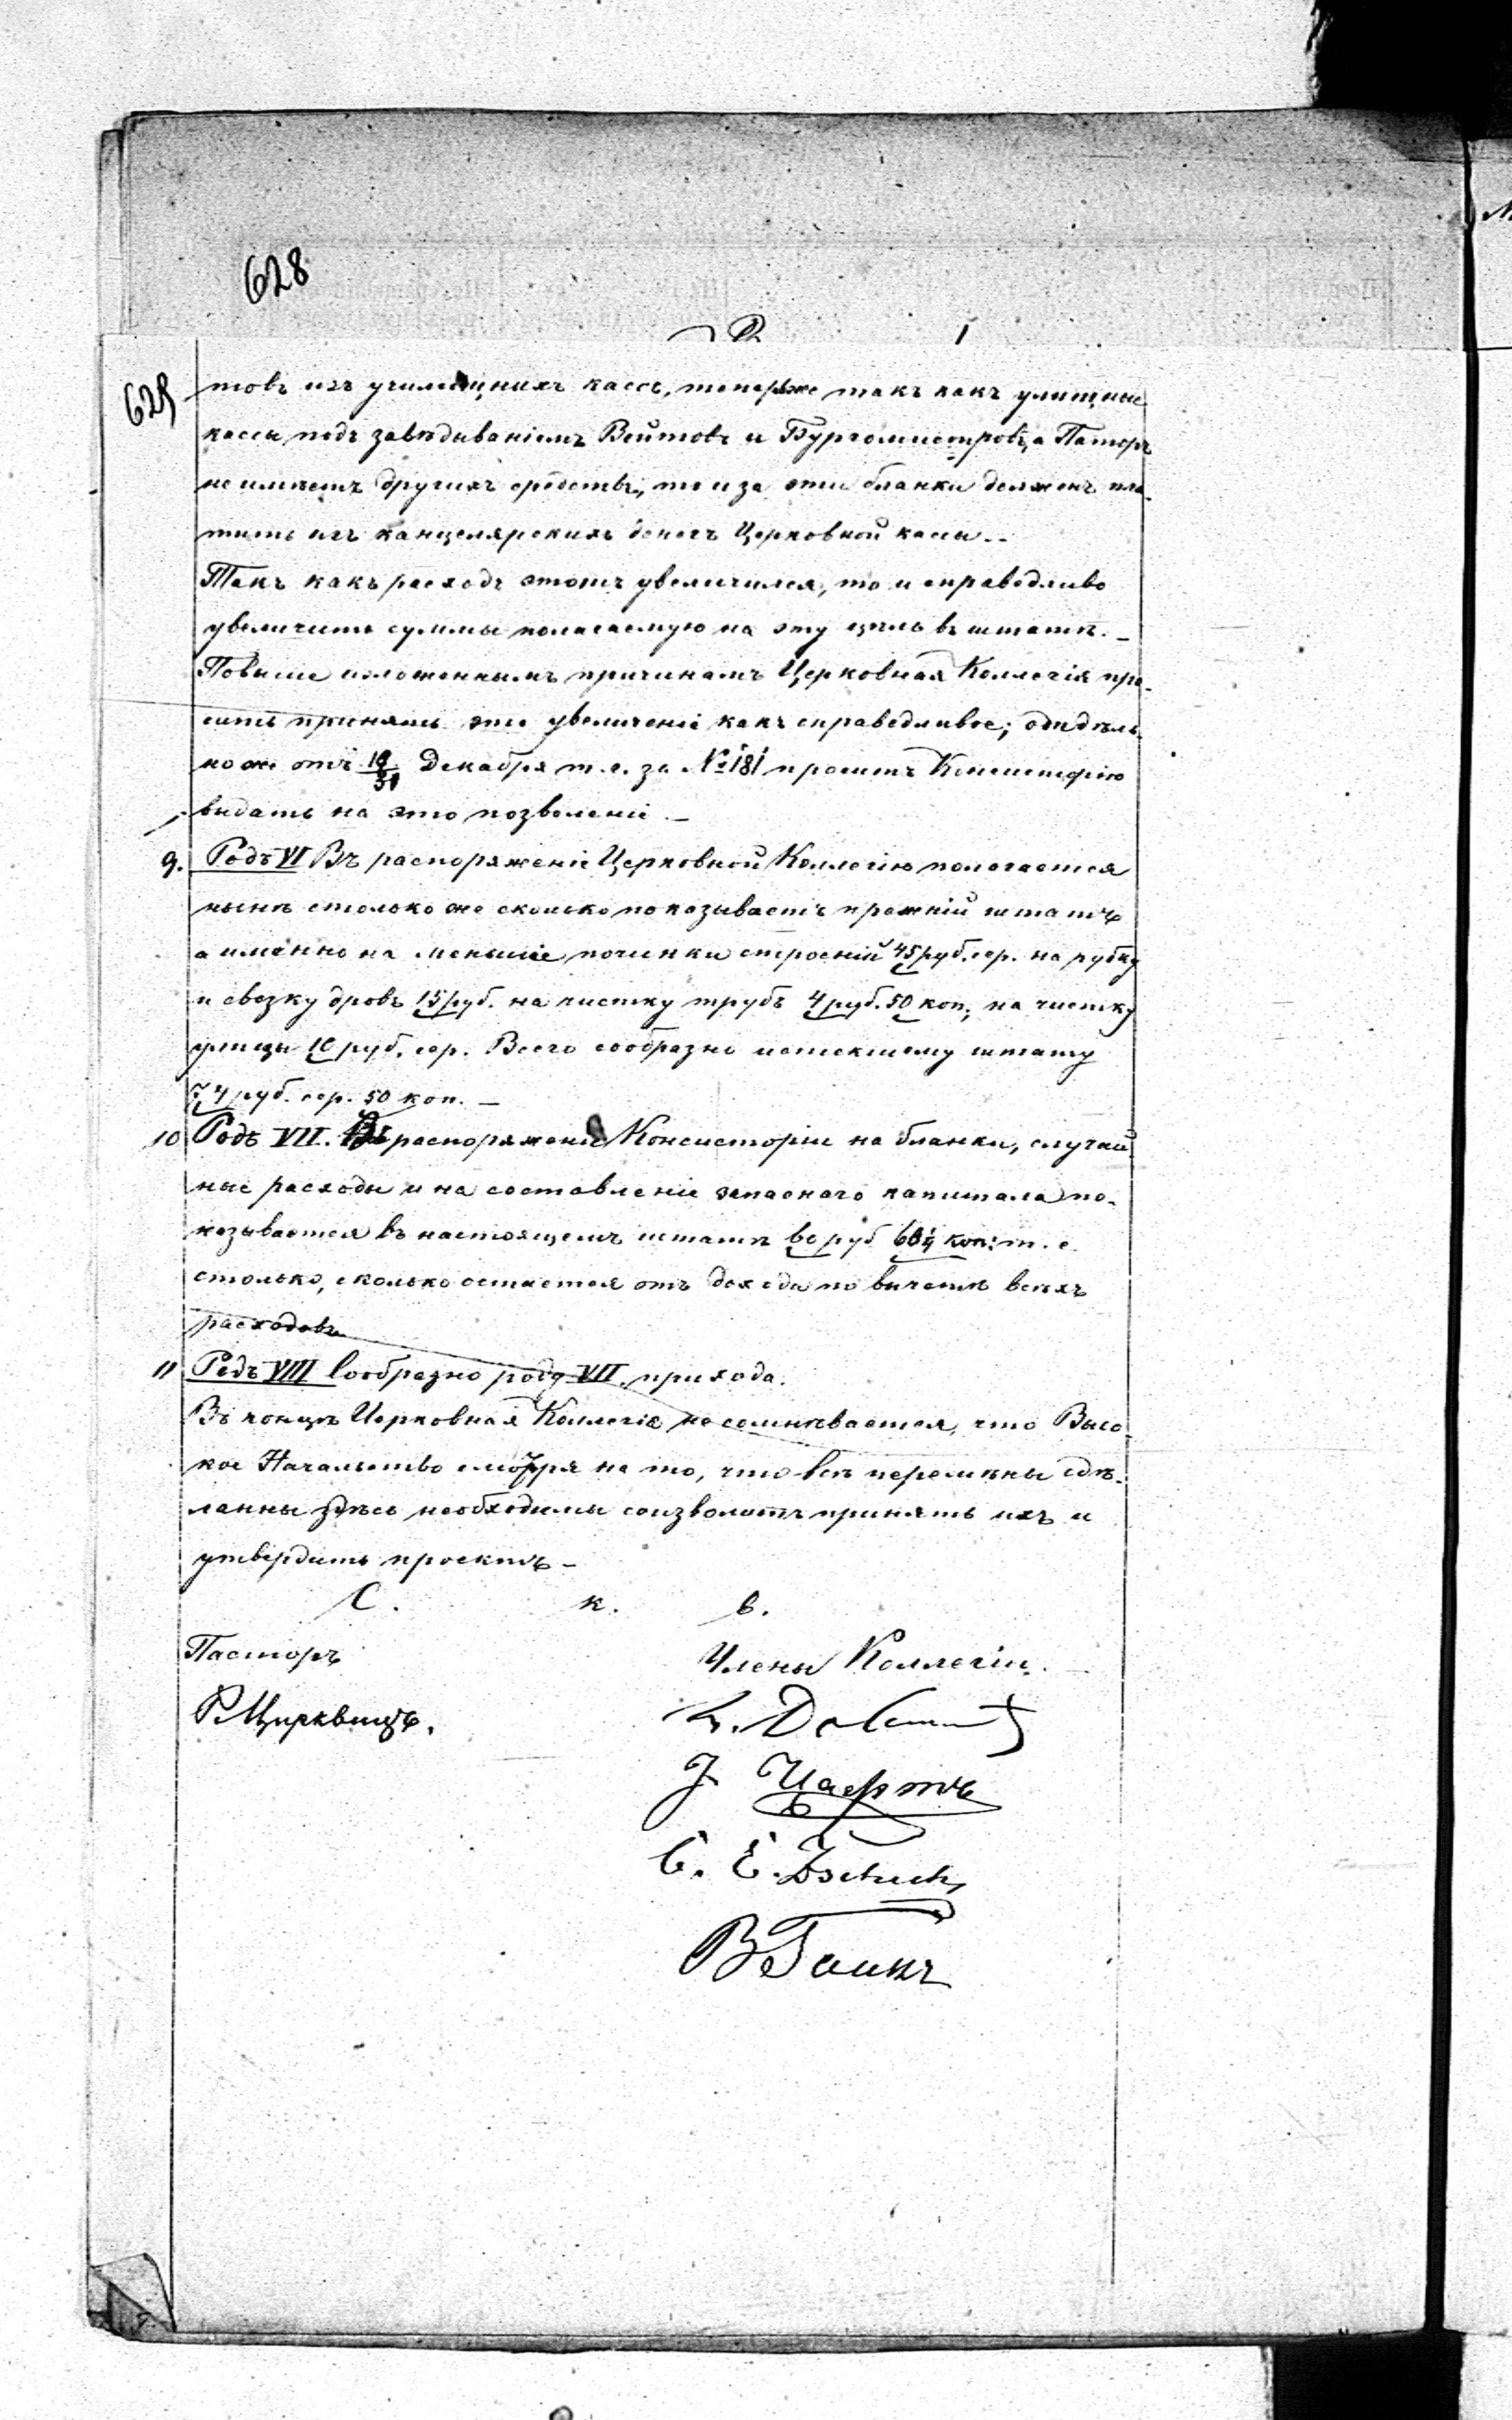 628
629
товъ изъ училищныхъ кассъ, теперьже такъ какъ училищные
кассы подъ завѣдываніемъ Войтовъ и Бургомистровъ, а Пасторъ
не имѣетъ другихъ средствъ, то и за эти бланки долженъ пла-
тить изъ канцелярскихъ денегъ Церковной кассы. -
Такъ какъ расходъ этотъ увеличился, то и справедливо
увеличить суммы полагаемую на эту цѣль въ штатѣ. -
Повыше изложеннымъ причинамъ Церковная Коллегія про-
ситъ принять это увеличеніе какъ справедливое;
но же отъ 19/31 Декабря т. г. за № 181 проситъ Консисторію
выдать на это позволеніе. -
9. Родъ VI Въ распоряженіе Церковной Коллегію пологается
нынѣ столько же сколько показываетъ прежній штатъ
а именно на меньшіе починки строеній 45 руб. сер. на рубку
и свозку дровъ 15 руб. на чистку трубъ 4 руб. 50 коп; на чистку
улицы 10 руб. сер. Всего сообразно истекшему штату
74 руб. сер. 50 коп. -
10 Родъ VII. Въ распоряженіе Консисторіи на бланки, случай
ные расходы и на составленіе запаснаго капитала по-
казывается въ настоящемъ штатѣ руб коп: т. е.
столько, сколько остается отъ дохода по вычетѣ всѣхъ
расходовъ
11 Родъ VIII Сообразно роду VII прихода.
Въ концѣ Церковная Коллегія не сомнѣвается, что Высо
кое Начальство смотря на то, что всѣ перемѣны сдѣ-
ланны здѣсь необходимы соизволитъ принять ихъ и
утвердить проектъ -
С. к. в.
Пасторъ Члены Коллегіи.
Р. Цирквицъ.